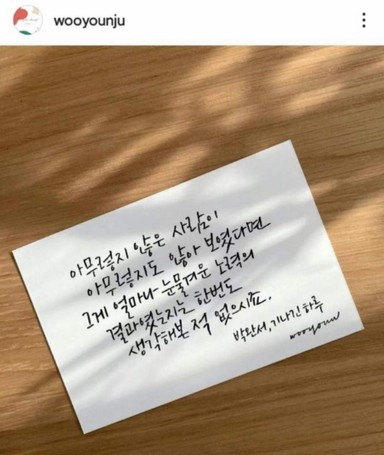 wooyounju
아무렇지 않은 사람이
아무렇지도 않아 보였다면
그게 얼마나 눈물겨운 노력의
결과였는지는 한번도
생각해본 적 없으시죠.
박완서, 기나긴 하루
wooyoun